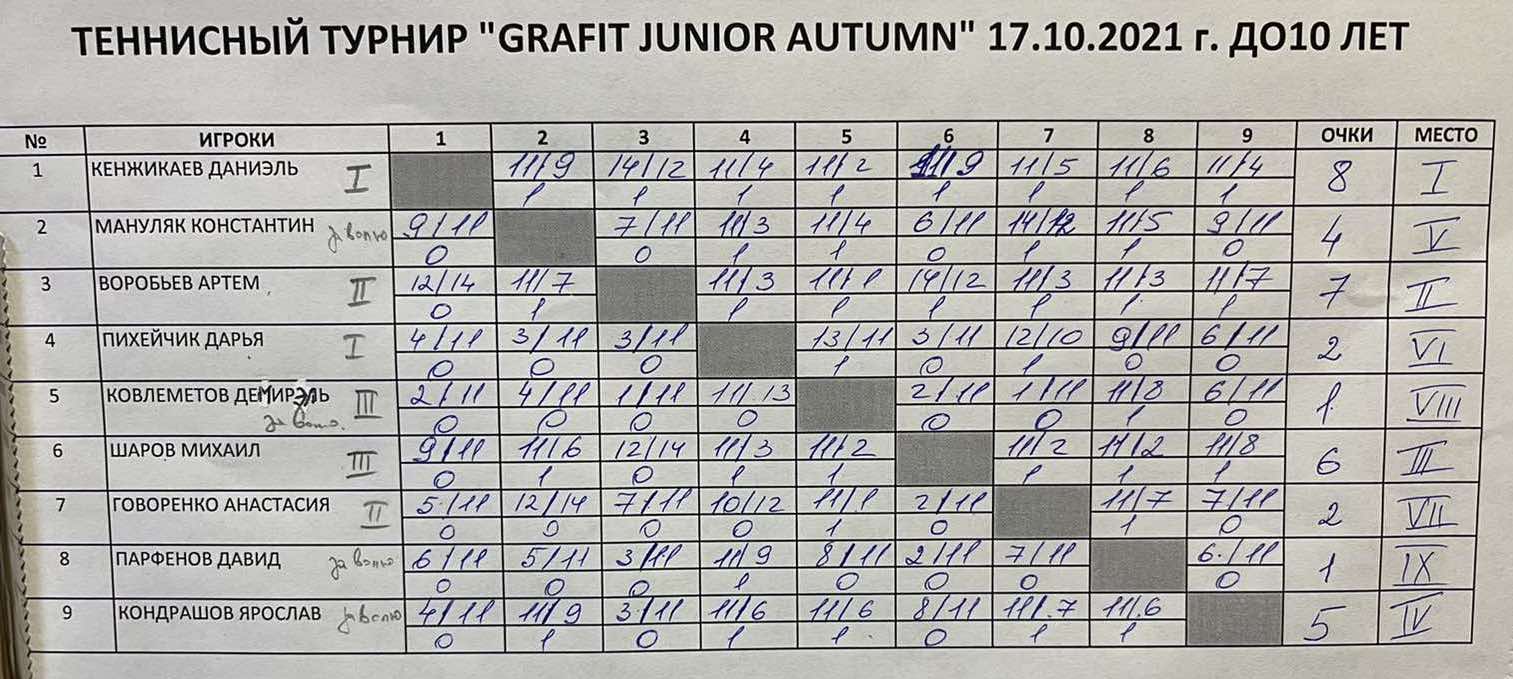 ТЕННИСНЫЙ ТУРНИР "GRAFIT JUNIOR AUTUMN" 17.10.2021 г. ДО10 ЛЕТ
№ ИГРОКИ 1 2 3 4 5 6 7 8 9 ОЧКИ МЕСТО
1 КЕНЖИКАЕВ ДАНИЭЛЬ I 11/9 14/12 11/4 11/2 11/9 11/5 11/6 11/4 8 I
1 1 1 1 1 1 1 1
2 МАНУЛЯК КОНСТАНТИН за волю 9/11 7/11 11/3 11/4 6/11 14/12 11/5 9/11 4 V
0 0 1 1 0 1 1 0
3 ВОРОБЬЕВ АРТЕМ II 12/14 11/7 11/3 11/1 14/12 11/3 11/3 11/7 7 II
0 1 1 1 1 1 1 1
4 ПИХЕЙЧИК ДАРЬЯ I 4/11 3/11 3/11 13/11 3/11 12/10 9/11 6/11 2 VI
0 0 0 1 0 1 0 0
5 КОВЛЕМЕТОВ ДЕМИРЭЛЬ III 2/11 4/11 1/11 11/13 2/11 1/11 11/8 6/11 1 VIII
за волю. 0 0 0 0 0 0 1 0
6 ШАРОВ МИХАИЛ III 9/11 11/6 12/14 11/3 11/2 11/2 11/2 11/8 6 III
0 1 0 1 1 1 1 1
7 ГОВОРЕНКО АНАСТАСИЯ II 5/11 12/14 7/11 10/12 11/1 2/11 11/7 7/11 2 VII
0 0 0 0 1 0 1 0
8 ПАРФЕНОВ ДАВИД за волю 6/11 5/11 3/11 11/9 8/11 2/11 7/11 6/11 1 IX
0 0 0 1 0 0 0 0
9 КОНДРАШОВ ЯРОСЛАВ за волю 4/11 11/9 3/11 11/6 11/6 8/11 11/7 11/6 5 IV
0 1 0 1 1 0 1 1